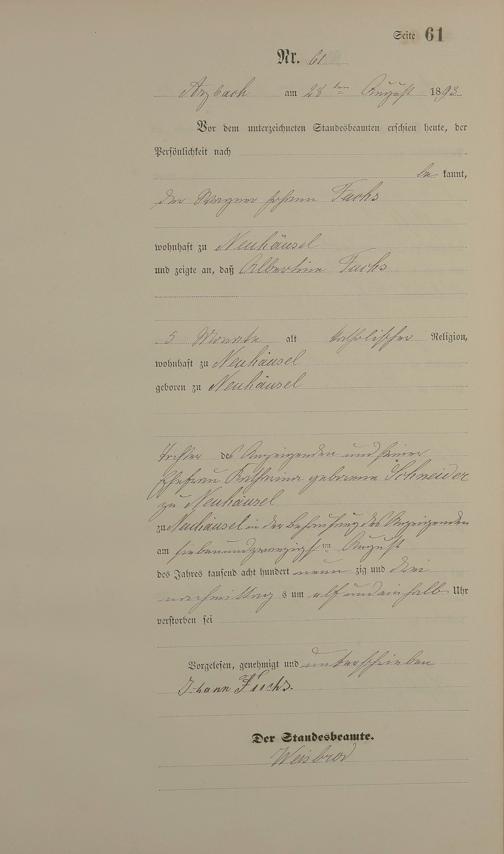 Seite 61
Nr. 61
Arzbach am 28ten August 1893
Vor dem unterzeichneten Standesbeamten erschien heute, der
Persönlichkeit nach
be kannt,
der Wagner Johann Fuchs
wohnhaft zu Neuhäusel
und zeigte an, daß Albertine Fuchs
5 Monate alt katholischer Religion,
wohnhaft zu Neuhäusel
geboren zu Neuhäusel
Tochter des Anzeigenden und seiner
Ehefrau Katharina geborene Schneider
zu Neuhäusel
zu Neuhäusel in der Behausung des Anzeigenden
am siebenundzwanzigsten August
des Jahres tausend acht hundert neun zig und drei
nachmittags um elf und einhalb Uhr
verstorben sei
Vorgelesen, genehmigt und unterschrieben
Johann Fuchs.
Der Standesbeamte.
Weisbrod